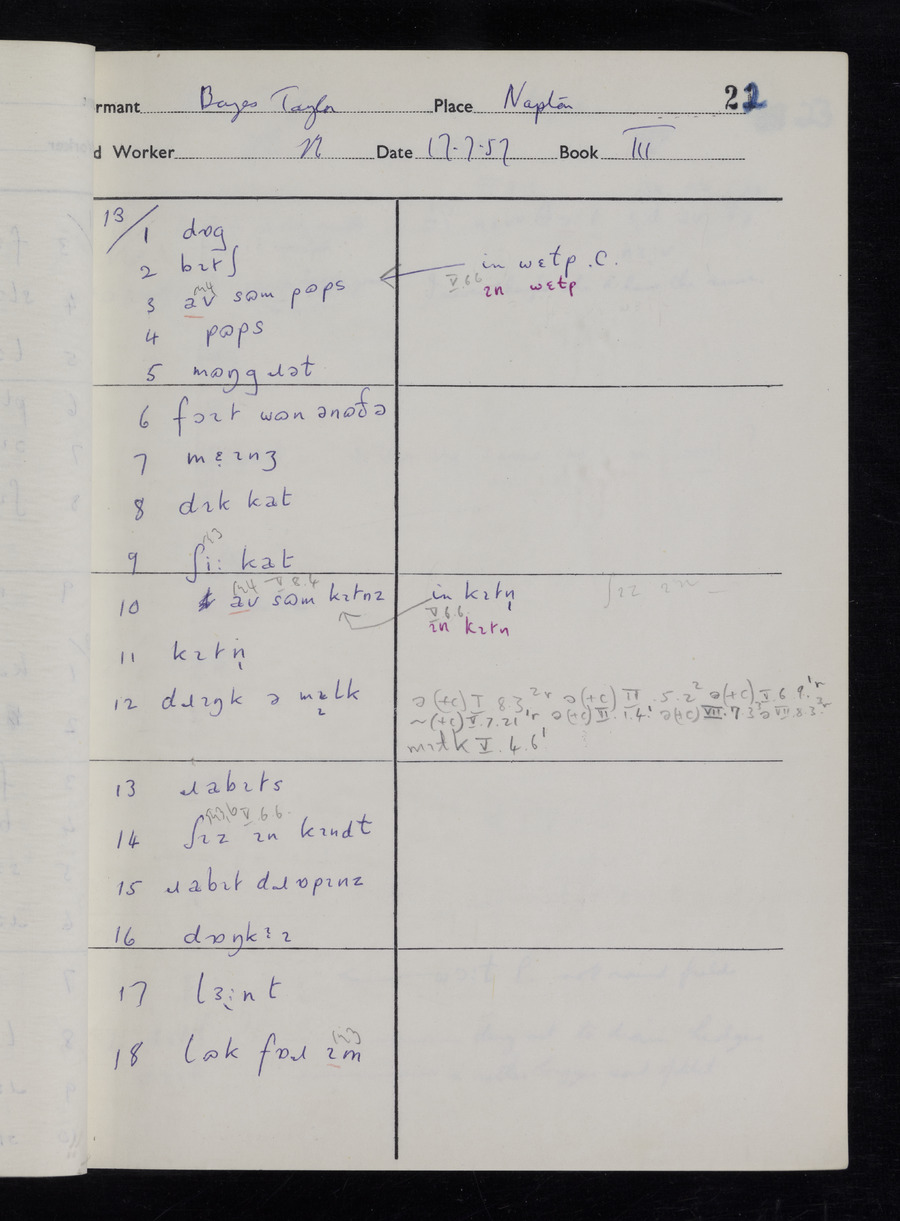 rmant Bayes Taylor Place Napton 22
d Worker N Date 17.7.57 Book III
13/
1 dɒg
2 bɪtʃ in wɛlp .C.
V.6.6 ɪn wɛlp
3 av sɷm pɷps
4 pɷps
5 mɷŋgɹət
6 fɔɪt wɷn ənɷðə
7 mɛɪnʒ
8 dɪk kat
9 ʃi: kat
10 av sɷm kɪtnz in kɪtn̩
V.6.6
ɪn kɪtn
11 kɪtn̩
12 dɹɪŋk ə mɪlk
ə(+c) I.8.3 ə(+c) III.5.2 ə(+c) V.6.9
~(+c) V.7.21 ə(+c) VI.1.4 ə(+c) VII.7.3 ə VII.8.3
mɪlk V.4.6
13 ɹabɪts
V.6.6
14 ʃɪz ɪn kɪndt
15 ɹabɪt dɹɒpɪnz
16 dɒŋkɪz
17 lɜ:nt
18 lɷk fɒɹ ɪm